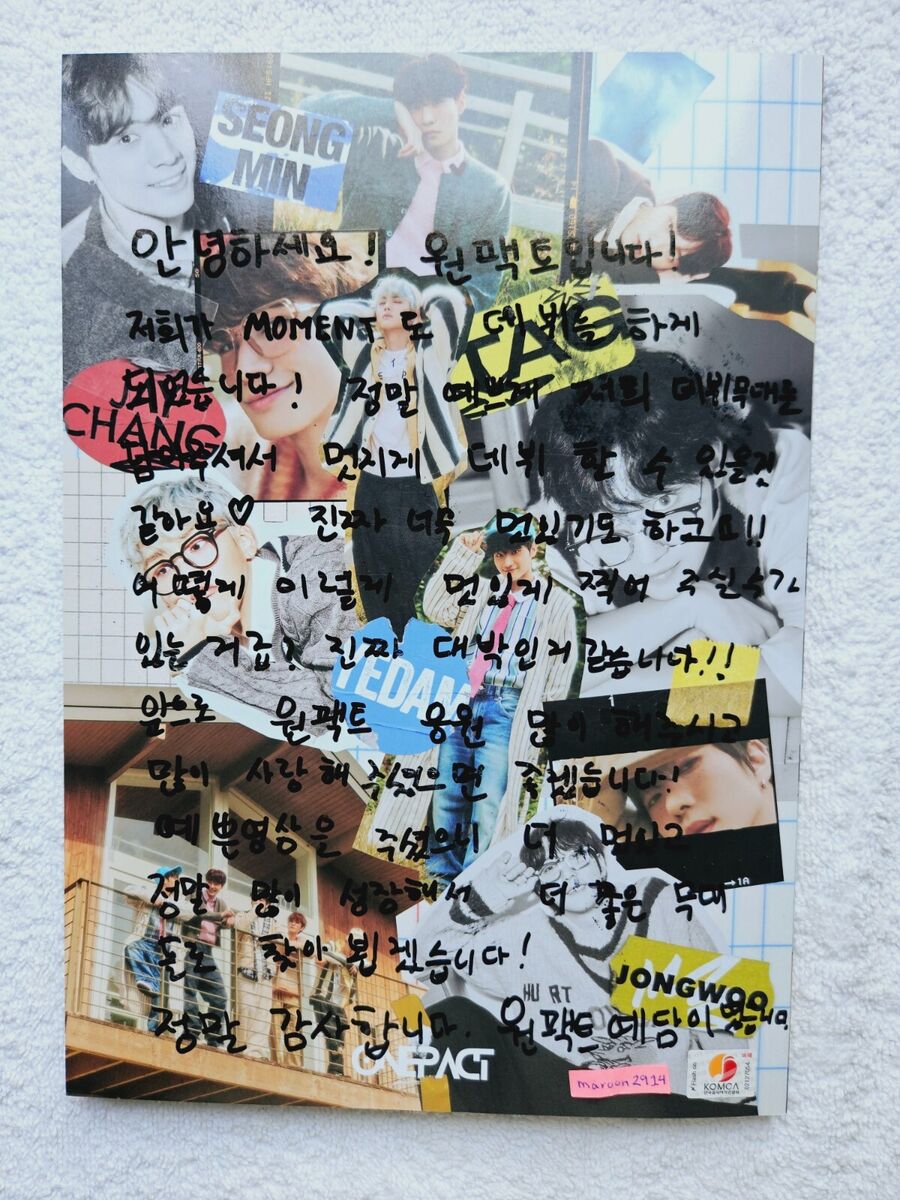 SEONG
MIN
안녕하세요! 원팩트입니다!
저희가 MOMENT로 데뷔를 하게
TAG
되었습니다! 정말 예쁘게 저희 데뷔무대를
JAY
CHANG
담아주셔서 멋지게 데뷔 할 수 있을것
같아요♡ 진짜 너무 멋있기도 하고요!!
어떻게 이렇게 멋있게 찍어 주실수가
있는 거죠? 진짜 대박인거같습니다!!
YEDAM
앞으로 원팩트 응원 많이 해주시고
많이 사랑해 주셨으면 좋겠습니다!
예쁜영상을 주셨으니 더 멋지고
정말 많이 성장해서 더 좋은 무대
들로 찾아 뵙겠습니다!
JONGWOO
HURT
정말 감사합니다. 원팩트 예담이
ONEPACT
maroon2914
KOMCA